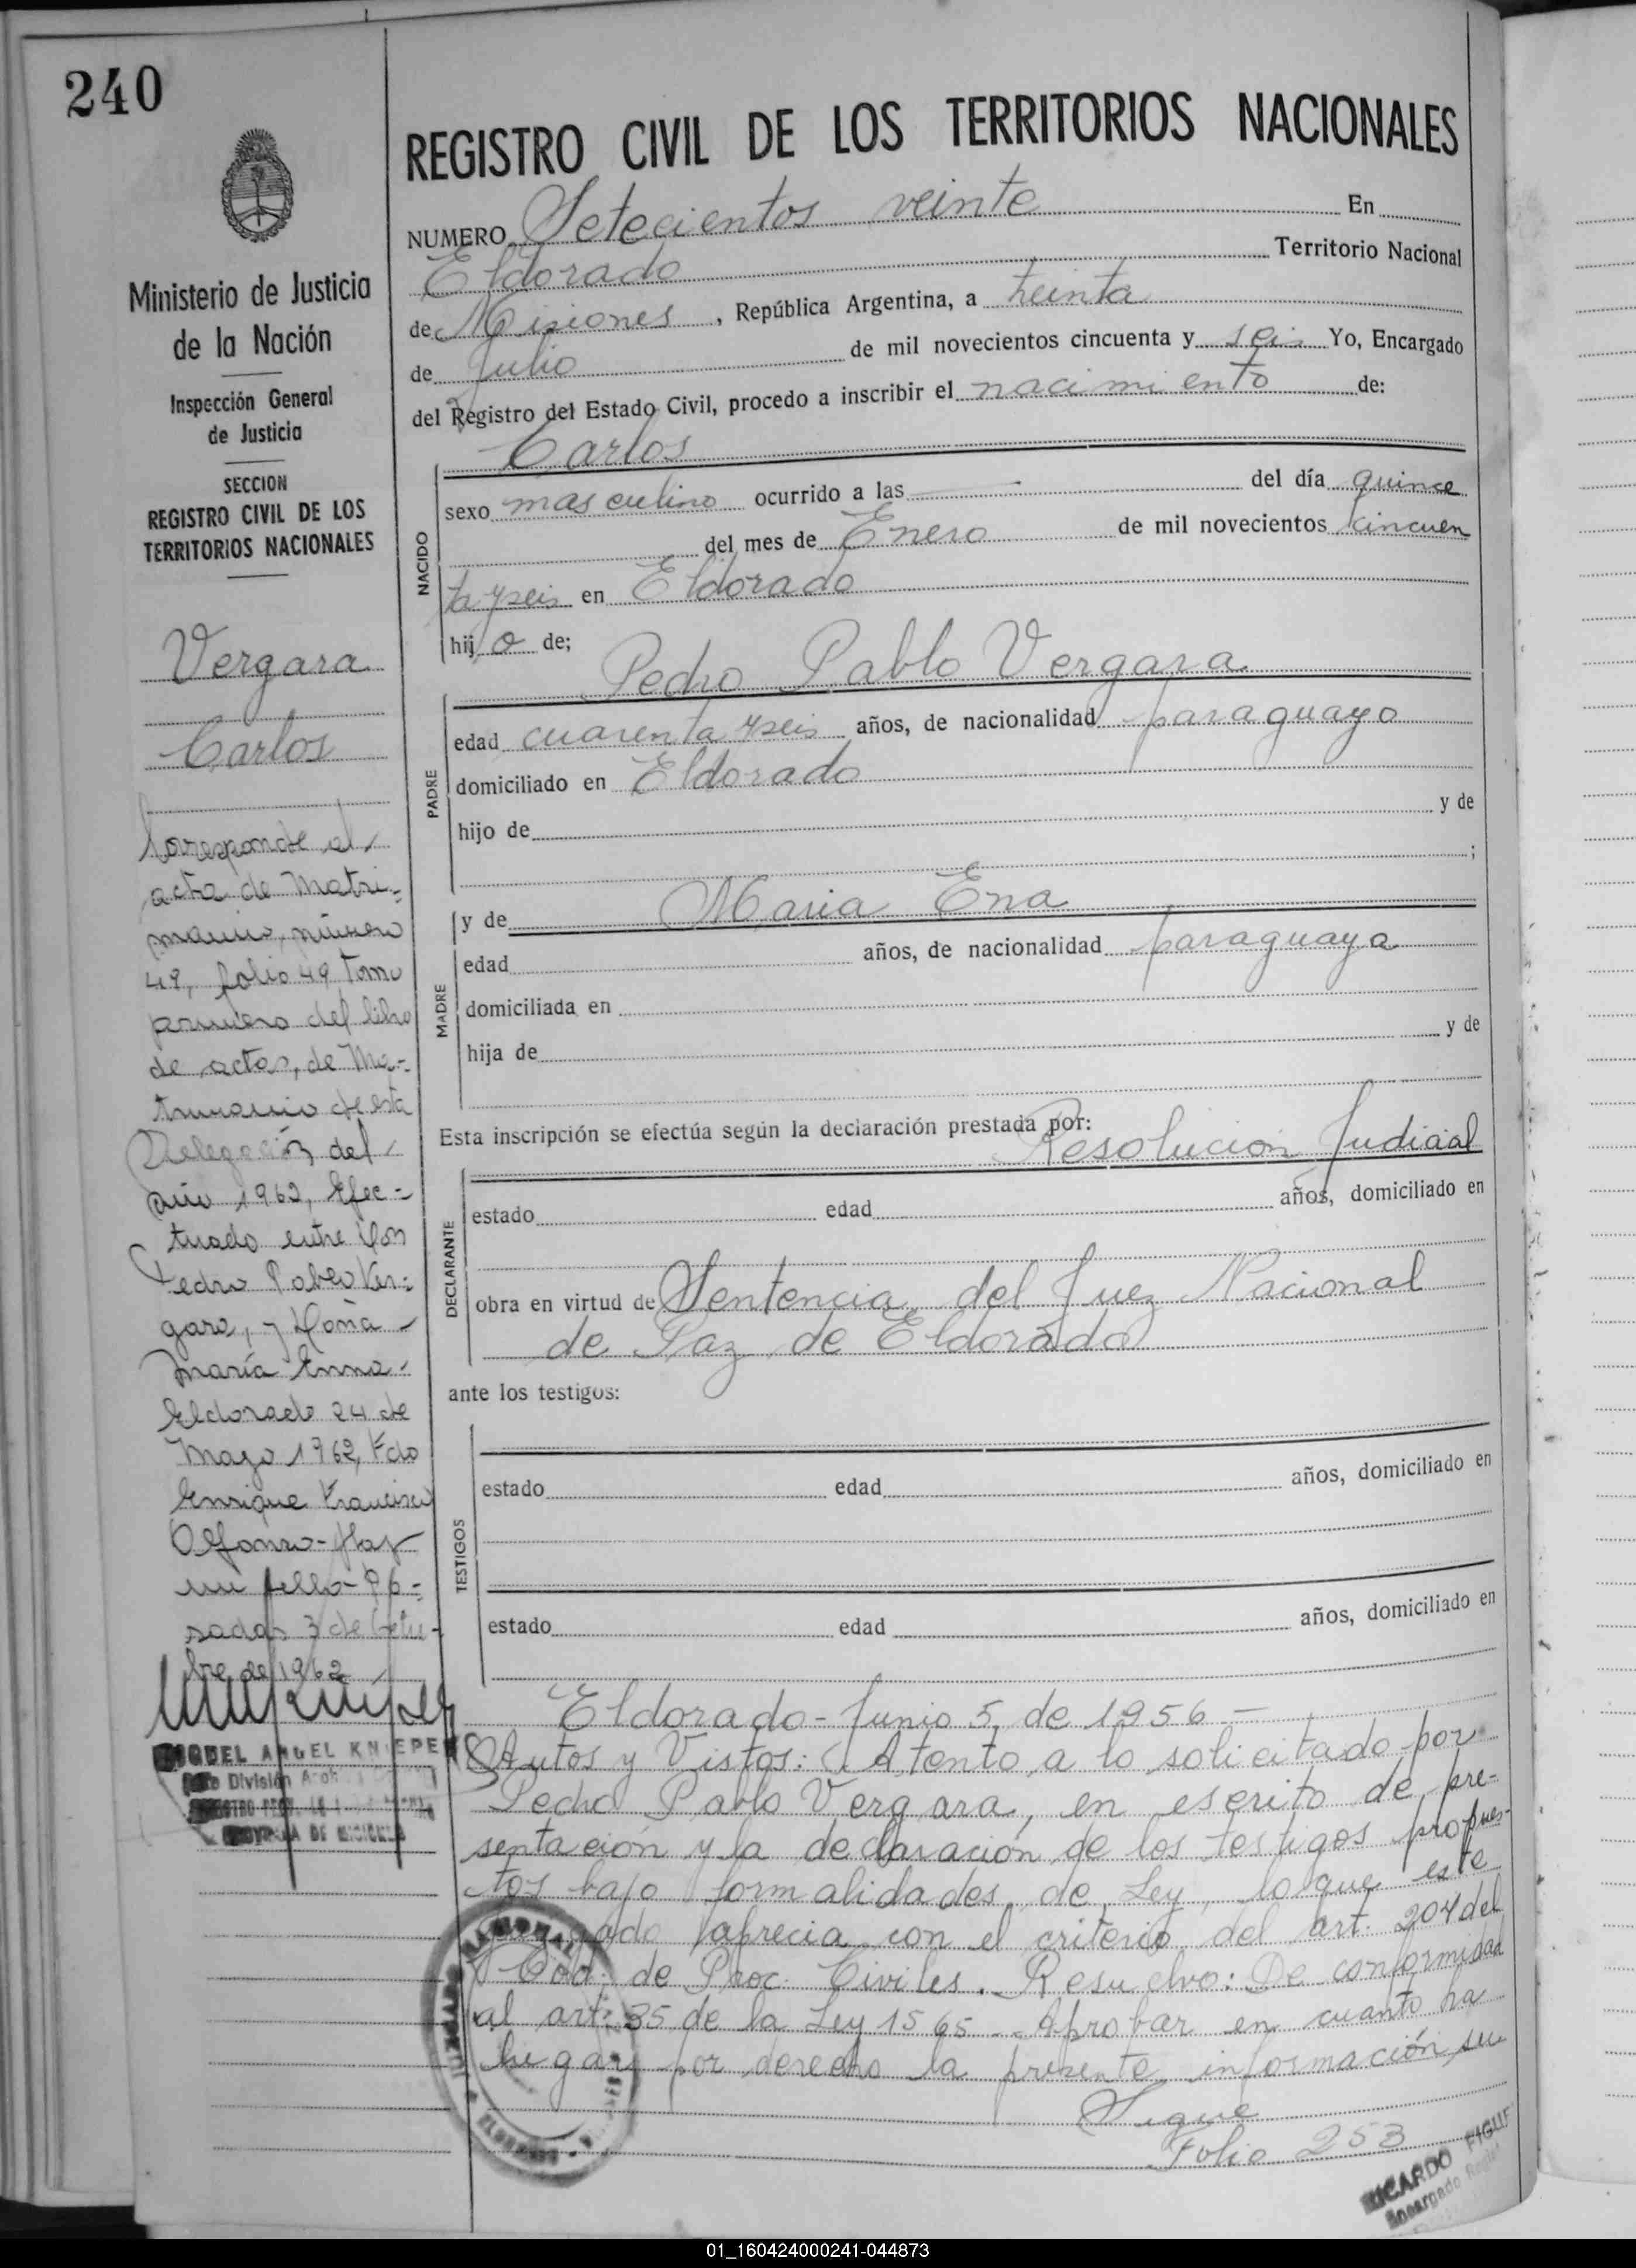 240
Ministerio de Justicia
de la Nación
Inspección General
de Justicia
SECCION
REGISTRO CIVIL DE LOS
TERRITORIOS NACIONALES
Vergara
Carlos
Corresponde al
acta de Matri-
monio, número
49, folio 49 Tomo
primero del libro
de actas, de Ma-
trimonio de esta
Delegación del
año 1962, Efec-
tuado entre Don
Pedro Pablo Ver-
gara, y Doña
María Enna
Eldorado 24 de
Mayo 1962, Fdo
Enrique Francisco
Alfonso - Hay
un sello - Po-
sadas 3 de Octu-
bre de 1962
MIGUEL ANGEL KNIEPER
División
REGISTRO CIVIL DE LOS TERRITORIOS NACIONALES
NUMERO Setecientos veinte En
Eldorado Territorio Nacional
de Misiones, República Argentina, a treinta
de Julio de mil novecientos cincuenta y seis Yo, Encargado
del Registro del Estado Civil, procedo a inscribir el nacimiento de:
Carlos
NACIDO
sexo masculino ocurrido a las del día quince
del mes de Enero de mil novecientos cincuen
ta y seis en Eldorado
hijo de;
Pedro Pablo Vergara
PADRE
edad cuarenta y seis años, de nacionalidad paraguayo
domiciliado en Eldorado
hijo de y de
;
y de Maria Ena
MADRE
edad años, de nacionalidad paraguaya
domiciliada en
hija de y de
Esta inscripción se efectúa según la declaración prestada por:
Resolucion Judicial
DECLARANTE
estado edad años, domiciliado en
obra en virtud de Sentencia del Juez Nacional
de Paz de Eldorado
ante los testigos:
TESTIGOS
estado edad años, domiciliado en
estado edad años, domiciliado en
Eldorado - Junio 5 de 1956 -
Autos y Vistos: Atento a lo solicitado por
Pedro Pablo Vergara, en escrito de pre-
sentación y la declaración de los testigos propues-
tos bajo formalidades de Ley, lo que este
Juzgado aprecia con el criterio del art. 204 del
Cod. de Proc. Civiles. Resuelvo: De conformidad
al art. 35 de la Ley 1565 - Aprobar en cuanto ha
lugar por derecho la presente información, su
Sigue
Folio 253
RICARDO FIGUE
Encargado Regis
01_160424000241-044873